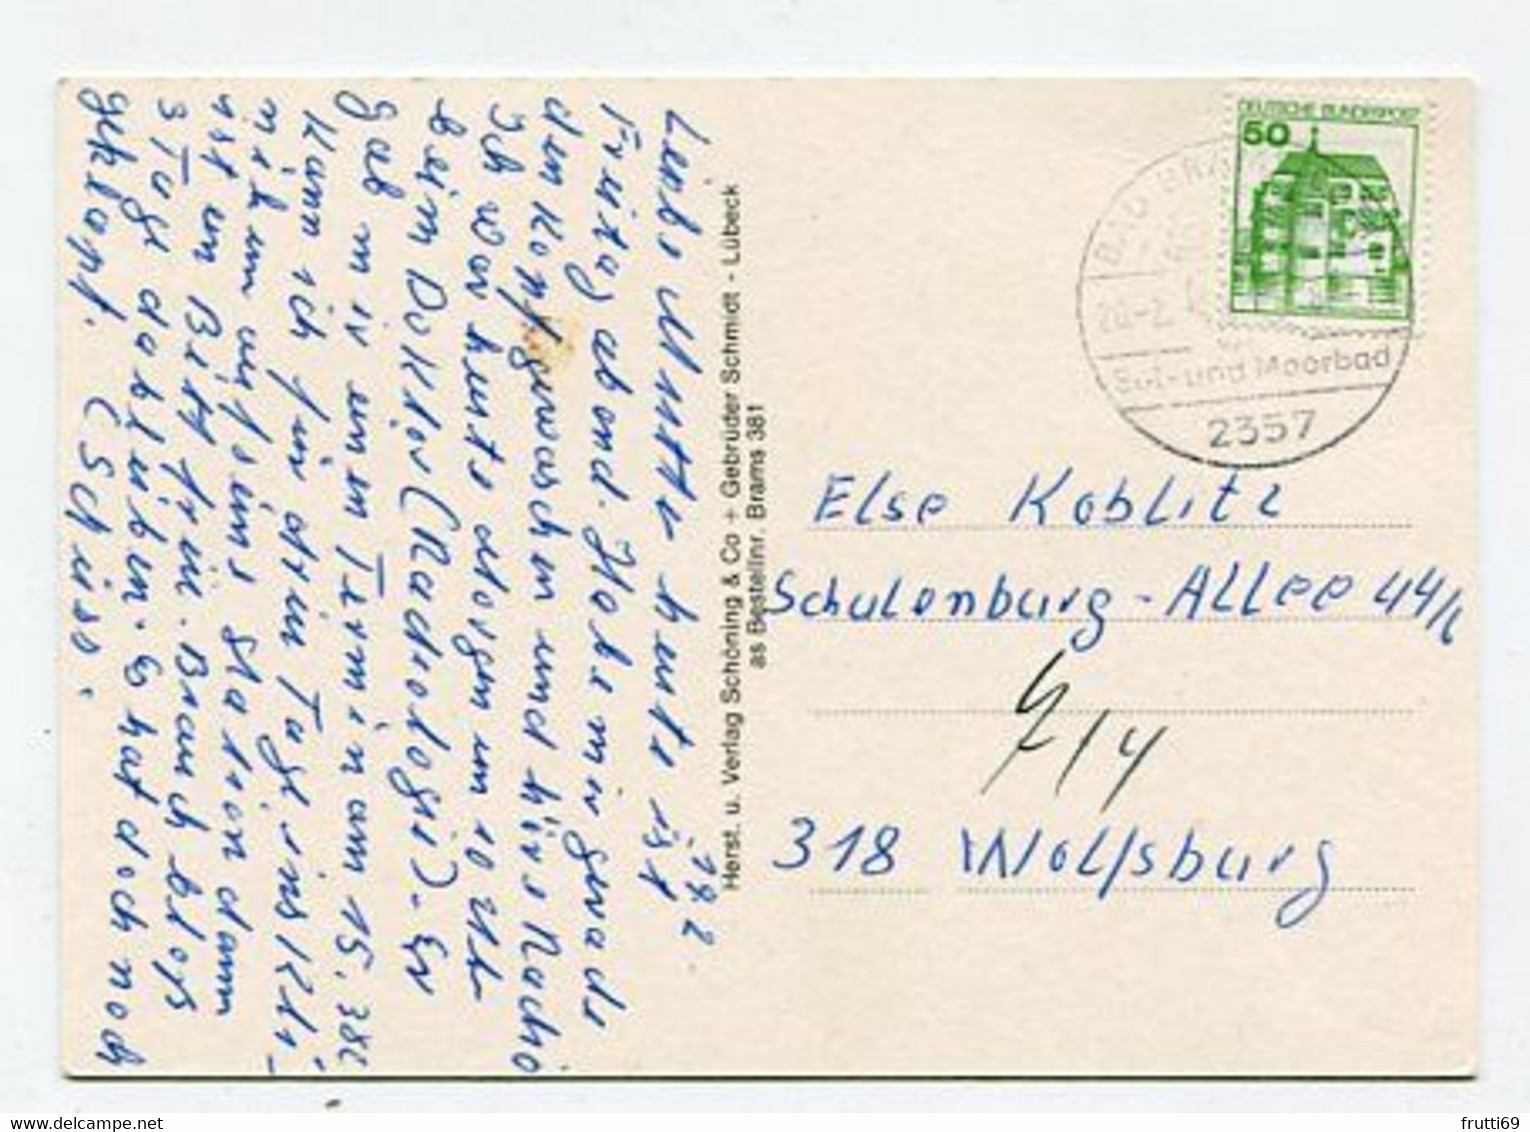 1.2.
Liebe Mutti heute ist
Freitag abend. Habe mir gerade
den Kopf gewaschen und höre Nacho
Ich war heute morgen um 10 Uhr
beim Doktor (Radiologie). Er
gab mir einen Termin am 15.
Kann ich für drei Tage ins Kli-
nikum auf eine Station dann
ist ein Bett frei. Brauch bloß
3 Tage da bleiben. Es hat doch noch
geklappt. Tschüss.
Herst. u. Verlag Schöning & Co + Gebrüder Schmidt - Lübeck
as Bestellnr. Brams 381
DEUTSCHE BUNDESPOST
50
BAD BRA
Sol- und Moorbad
2357
Else Koblitz
Schulenburg-Allee 44/
318 Wolfsburg
frutti69